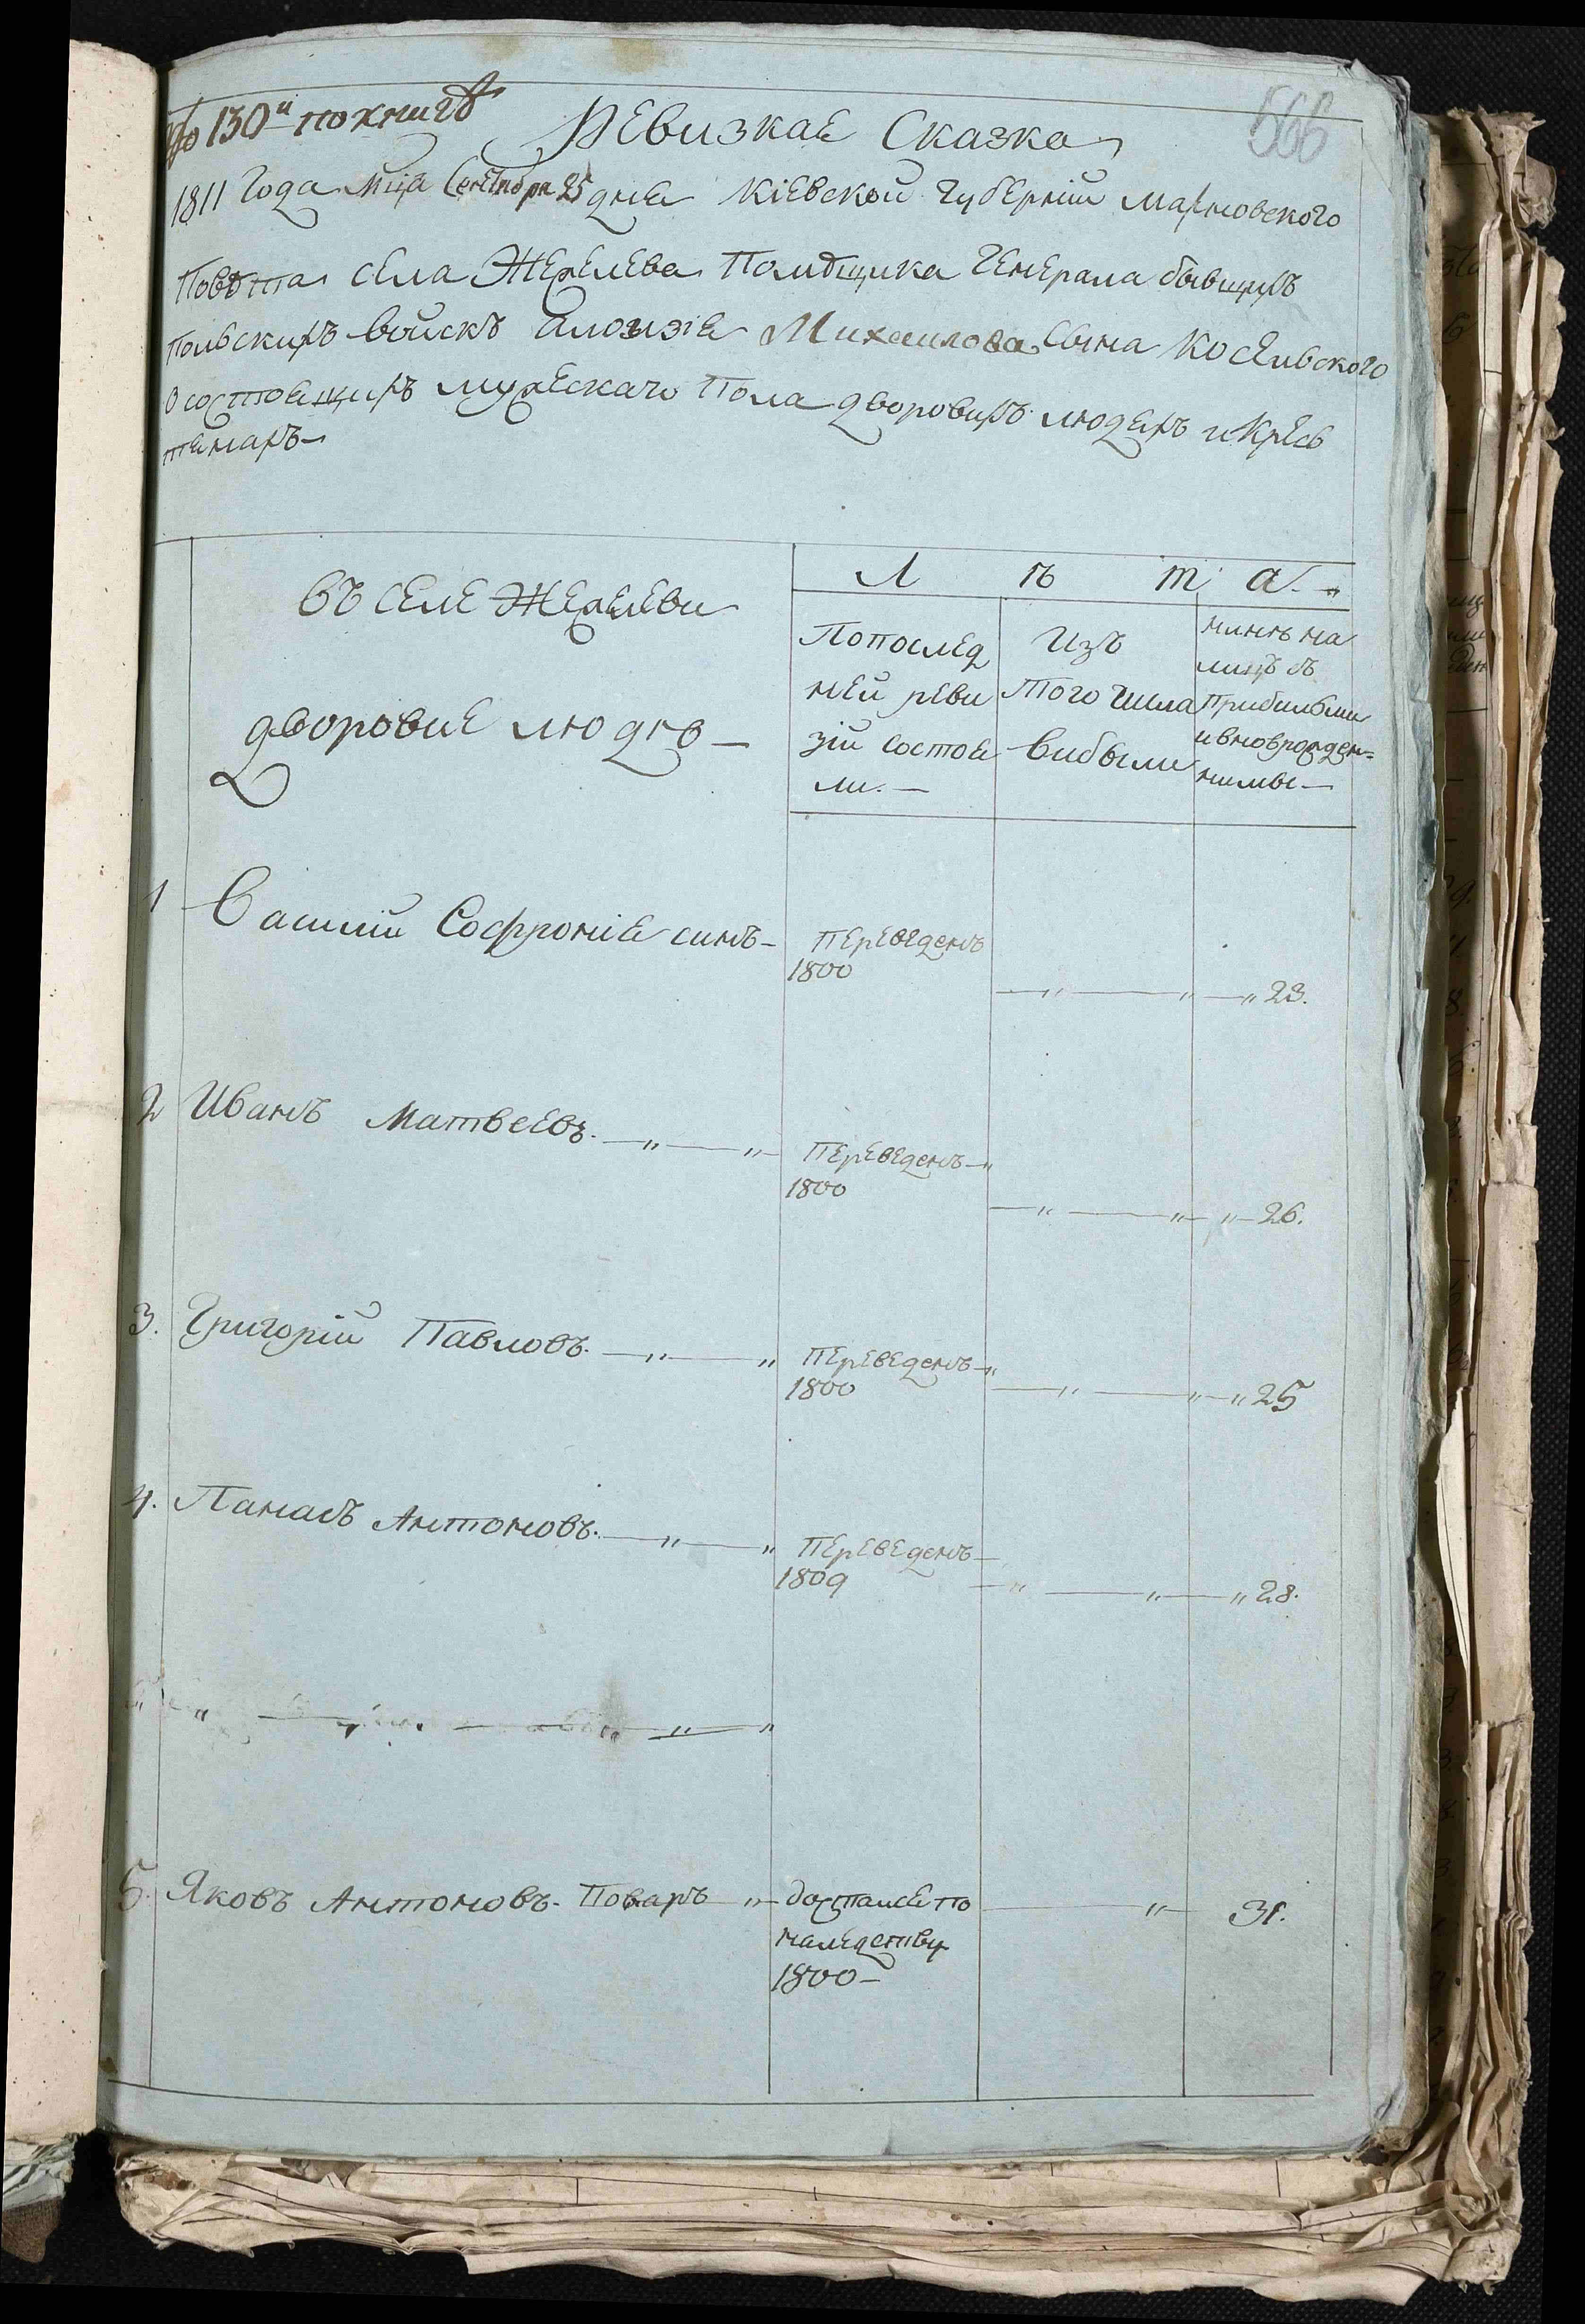 № 130й по книгѣ
566
Ревизкае Сказка
1811 года мца Сентября 25 дня Кіевской губерніи Махновского
Повѣта села Жежелева Помѣщика Генерала бывшихъ
польскихъ войскъ Алоизіе Михаилова Сына Косельского
О состоещихъ мужескаго Пола дворовихъ людехъ и Кресь
тенахъ
въ селе Жежелеви
дворовие люде
Л ѣ т а
По послед
ней реви
зіи состое
ли.
Изъ
того числа
вибыли
нинѣ на
лицѣ съ
прибилыми
и вновь рожден=
ними
1 Василій Софроніе синъ переведенъ
1800 23.
2 Иванъ Матвеевъ переведенъ
1800 26.
3. Григорій Павловъ переведенъ
1800 25
4. Панасъ Антоновъ переведенъ
1809 28.
5. Яковъ Антоновъ Поваръ досталсе по 31.
наследству
1800